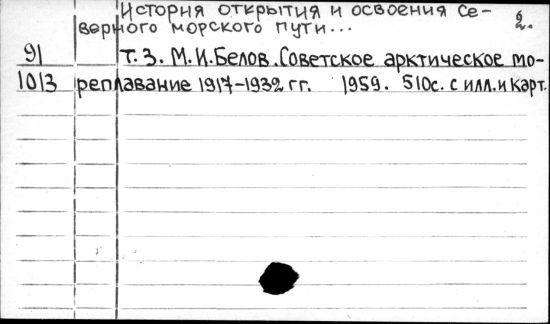 История открытия и освоения Се- 2.
верного морского пути...
91 Т. 3. М.И.Белов. Советское арктическое мо-
1013 реплавание 1917-1932 гг. 1959. 510с. с илл. и карт.